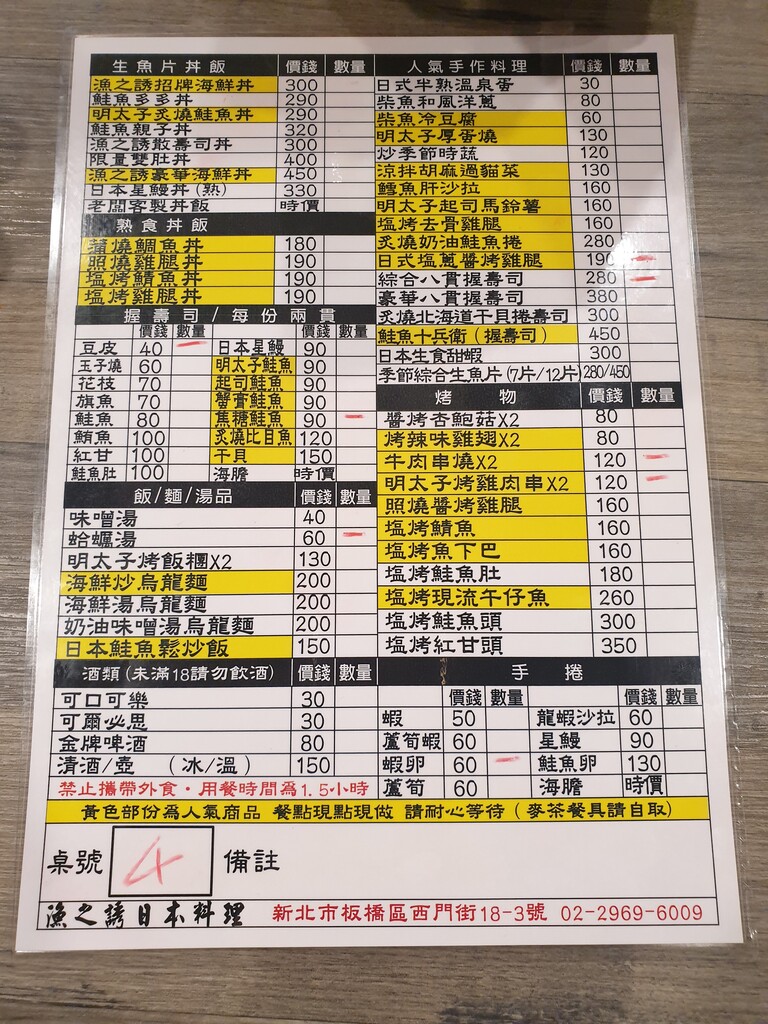 生魚片丼飯 價錢 數量
漁之誘招牌海鮮丼 300
鮭魚多多丼 290
明太子炙燒鮭魚丼 290
鮭魚親子丼 320
漁之誘散壽司丼 300
限量雙肚丼 400
漁之誘豪華海鮮丼 450
日本星鰻丼(熟) 330
老闆客製丼飯 時價
熟食丼飯
蒲燒鯛魚丼 180
照燒雞腿丼 190
塩烤鯖魚丼 190
塩烤雞腿丼 190
握壽司/每份兩貫
價錢 數量 價錢 數量
豆皮 40 日本星鰻 90
玉子燒 60 明太子鮭魚 90
花枝 70 起司鮭魚 90
旗魚 70 蟹膏鮭魚 90
鮭魚 80 焦糖鮭魚 90
鮪魚 100 炙燒比目魚 120
紅甘 100 干貝 150
鮭魚肚 100 海膽 時價
飯/麵/湯品 價錢 數量
味噌湯 40
蛤蠣湯 60
明太子烤飯糰X2 130
海鮮炒烏龍麵 200
海鮮湯烏龍麵 200
奶油味噌湯烏龍麵 200
日本鮭魚鬆炒飯 150
酒類(未滿18請勿飲酒) 價錢 數量
可口可樂 30
可爾必思 30
金牌啤酒 80
清酒/壺 (冰/溫) 150
禁止攜帶外食・用餐時間為1.5小時
人氣手作料理 價錢 數量
日式半熟溫泉蛋 30
柴魚和風洋蔥 80
柴魚冷豆腐 60
明太子厚蛋燒 130
炒季節時蔬 120
涼拌胡麻過貓菜 130
鱈魚肝沙拉 160
明太子起司馬鈴薯 160
塩烤去骨雞腿 160
炙燒奶油鮭魚捲 280
日式塩蔥醬烤雞腿 190
綜合八貫握壽司 280
豪華八貫握壽司 380
炙燒北海道干貝捲壽司 300
鮭魚十兵衛(握壽司) 450
日本生食甜蝦 300
季節綜合生魚片(7片/12片) 280/450
烤物 價錢 數量
醬烤杏鮑菇X2 80
烤辣味雞翅X2 80
牛肉串燒X2 120
明太子烤雞肉串X2 120
照燒醬烤雞腿 160
塩烤鯖魚 160
塩烤魚下巴 160
塩烤鮭魚肚 180
塩烤現流午仔魚 260
塩烤鮭魚頭 300
塩烤紅甘頭 350
手捲
價錢 數量 價錢 數量
蝦 50 龍蝦沙拉 60
蘆筍蝦 60 星鰻 90
蝦卵 60 鮭魚卵 130
蘆筍 60 海膽 時價
黃色部份為人氣商品 餐點現點現做 請耐心等待(麥茶餐具請自取)
桌號 4 備註
漁之誘日本料理 新北市板橋區西門街18-3號 02-2969-6009